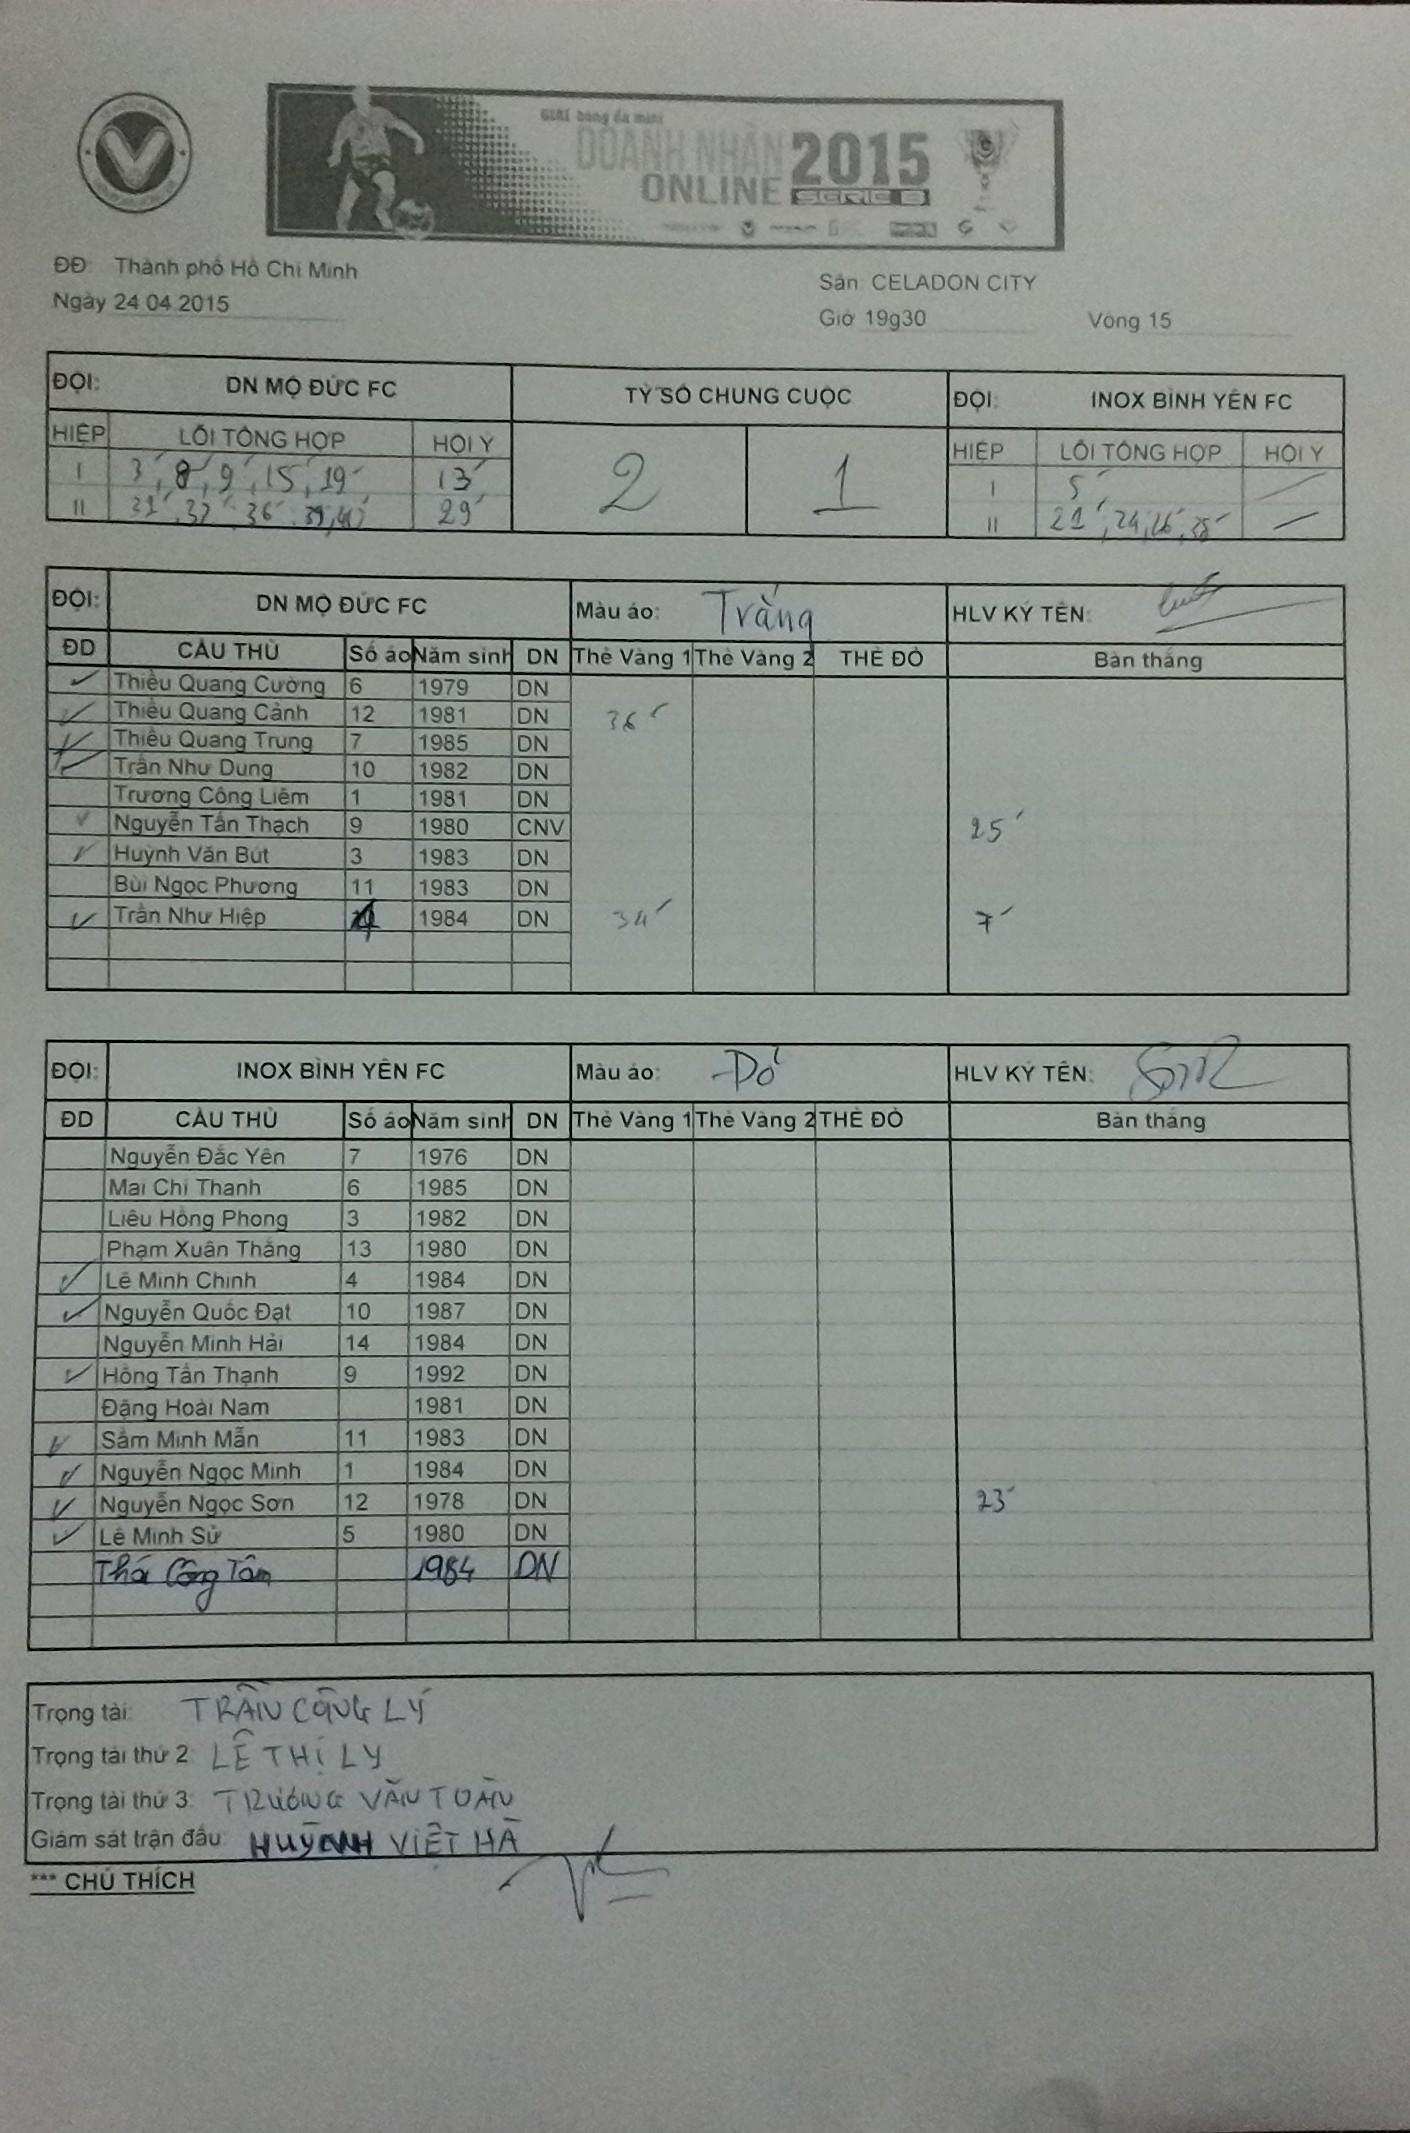 GIẢI bóng đá mini
DOANH NHÂN 2015
ONLINE SERIE B
ĐĐ: Thành phố Hồ Chí Minh
Ngày 24 04 2015
Sân: CELADON CITY
Giờ 19g30 Vòng 15
ĐỘI: DN MỘ ĐỨC FC TỶ SỐ CHUNG CUỘC ĐỘI: INOX BÌNH YÊN FC
HIỆP LỖI TỔNG HỢP HỘI Ý 2 1 HIỆP LỖI TỔNG HỢP HỘI Ý
I 3', 8', 9', 15', 19' 13' I 5'
II 31', 32', 36', 39', 40' 29' II 21', 24, 26, 38'
ĐỘI: DN MỘ ĐỨC FC Màu áo: Trắng HLV KÝ TÊN:
ĐD CẦU THỦ Số áo Năm sinh DN Thẻ Vàng 1 Thẻ Vàng 2 THẺ ĐỎ Bàn thắng
✓ Thiều Quang Cường 6 1979 DN
✓ Thiều Quang Cảnh 12 1981 DN 36'
✓ Thiều Quang Trung 7 1985 DN
✓ Trần Như Dung 10 1982 DN
Trương Công Liêm 1 1981 DN
✓ Nguyễn Tấn Thạch 9 1980 CNV 25'
✓ Huỳnh Văn Bút 3 1983 DN
Bùi Ngọc Phương 11 1983 DN
✓ Trần Như Hiệp 4 1984 DN 34' 7'
ĐỘI: INOX BÌNH YÊN FC Màu áo: Đỏ HLV KÝ TÊN:
ĐD CẦU THỦ Số áo Năm sinh DN Thẻ Vàng 1 Thẻ Vàng 2 THẺ ĐỎ Bàn thắng
Nguyễn Đắc Yên 7 1976 DN
Mai Chí Thanh 6 1985 DN
Liêu Hồng Phong 3 1982 DN
Phạm Xuân Thắng 13 1980 DN
✓ Lê Minh Chinh 4 1984 DN
✓ Nguyễn Quốc Đạt 10 1987 DN
Nguyễn Minh Hải 14 1984 DN
✓ Hồng Tấn Thạnh 9 1992 DN
Đặng Hoài Nam 1981 DN
✓ Sầm Minh Mẫn 11 1983 DN
✓ Nguyễn Ngọc Minh 1 1984 DN
✓ Nguyễn Ngọc Sơn 12 1978 DN 23'
✓ Lê Minh Sử 5 1980 DN
Thái Công Tâm 1984 DN
Trọng tài: TRẦN CÔNG LÝ
Trọng tài thứ 2: LÊ THỊ LY
Trọng tài thứ 3: TRƯƠNG VĂN TOÀN
Giám sát trận đấu: HUỲNH VIỆT HÀ
*** CHÚ THÍCH